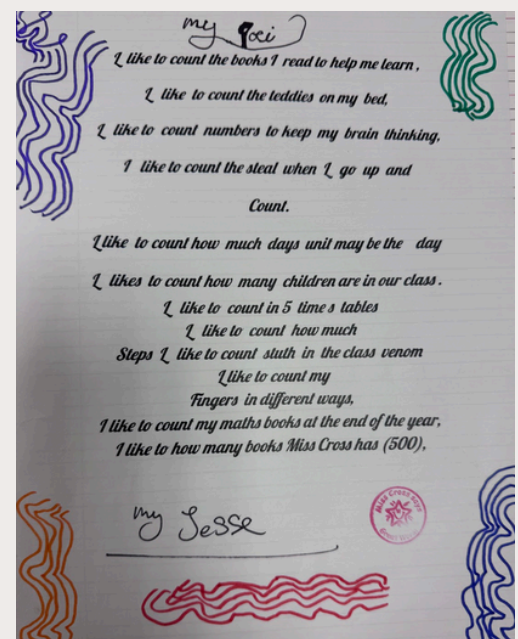 my
I like to count the books I read to help me learn,
I like to count the teddies on my bed,
I like to count numbers to keep my brain thinking,
I like to count the steal when I go up and
Count.
I like to count how much days unit may be the day
I likes to count how many children are in our class.
I like to count in 5 time s tables
I like to count how much
Steps I like to count stuth in the class venom
I like to count my
Fingers in different ways,
I like to count my maths books at the end of the year,
I like to how many books Miss Cross has (500),
my Jesse
Miss Cross Says